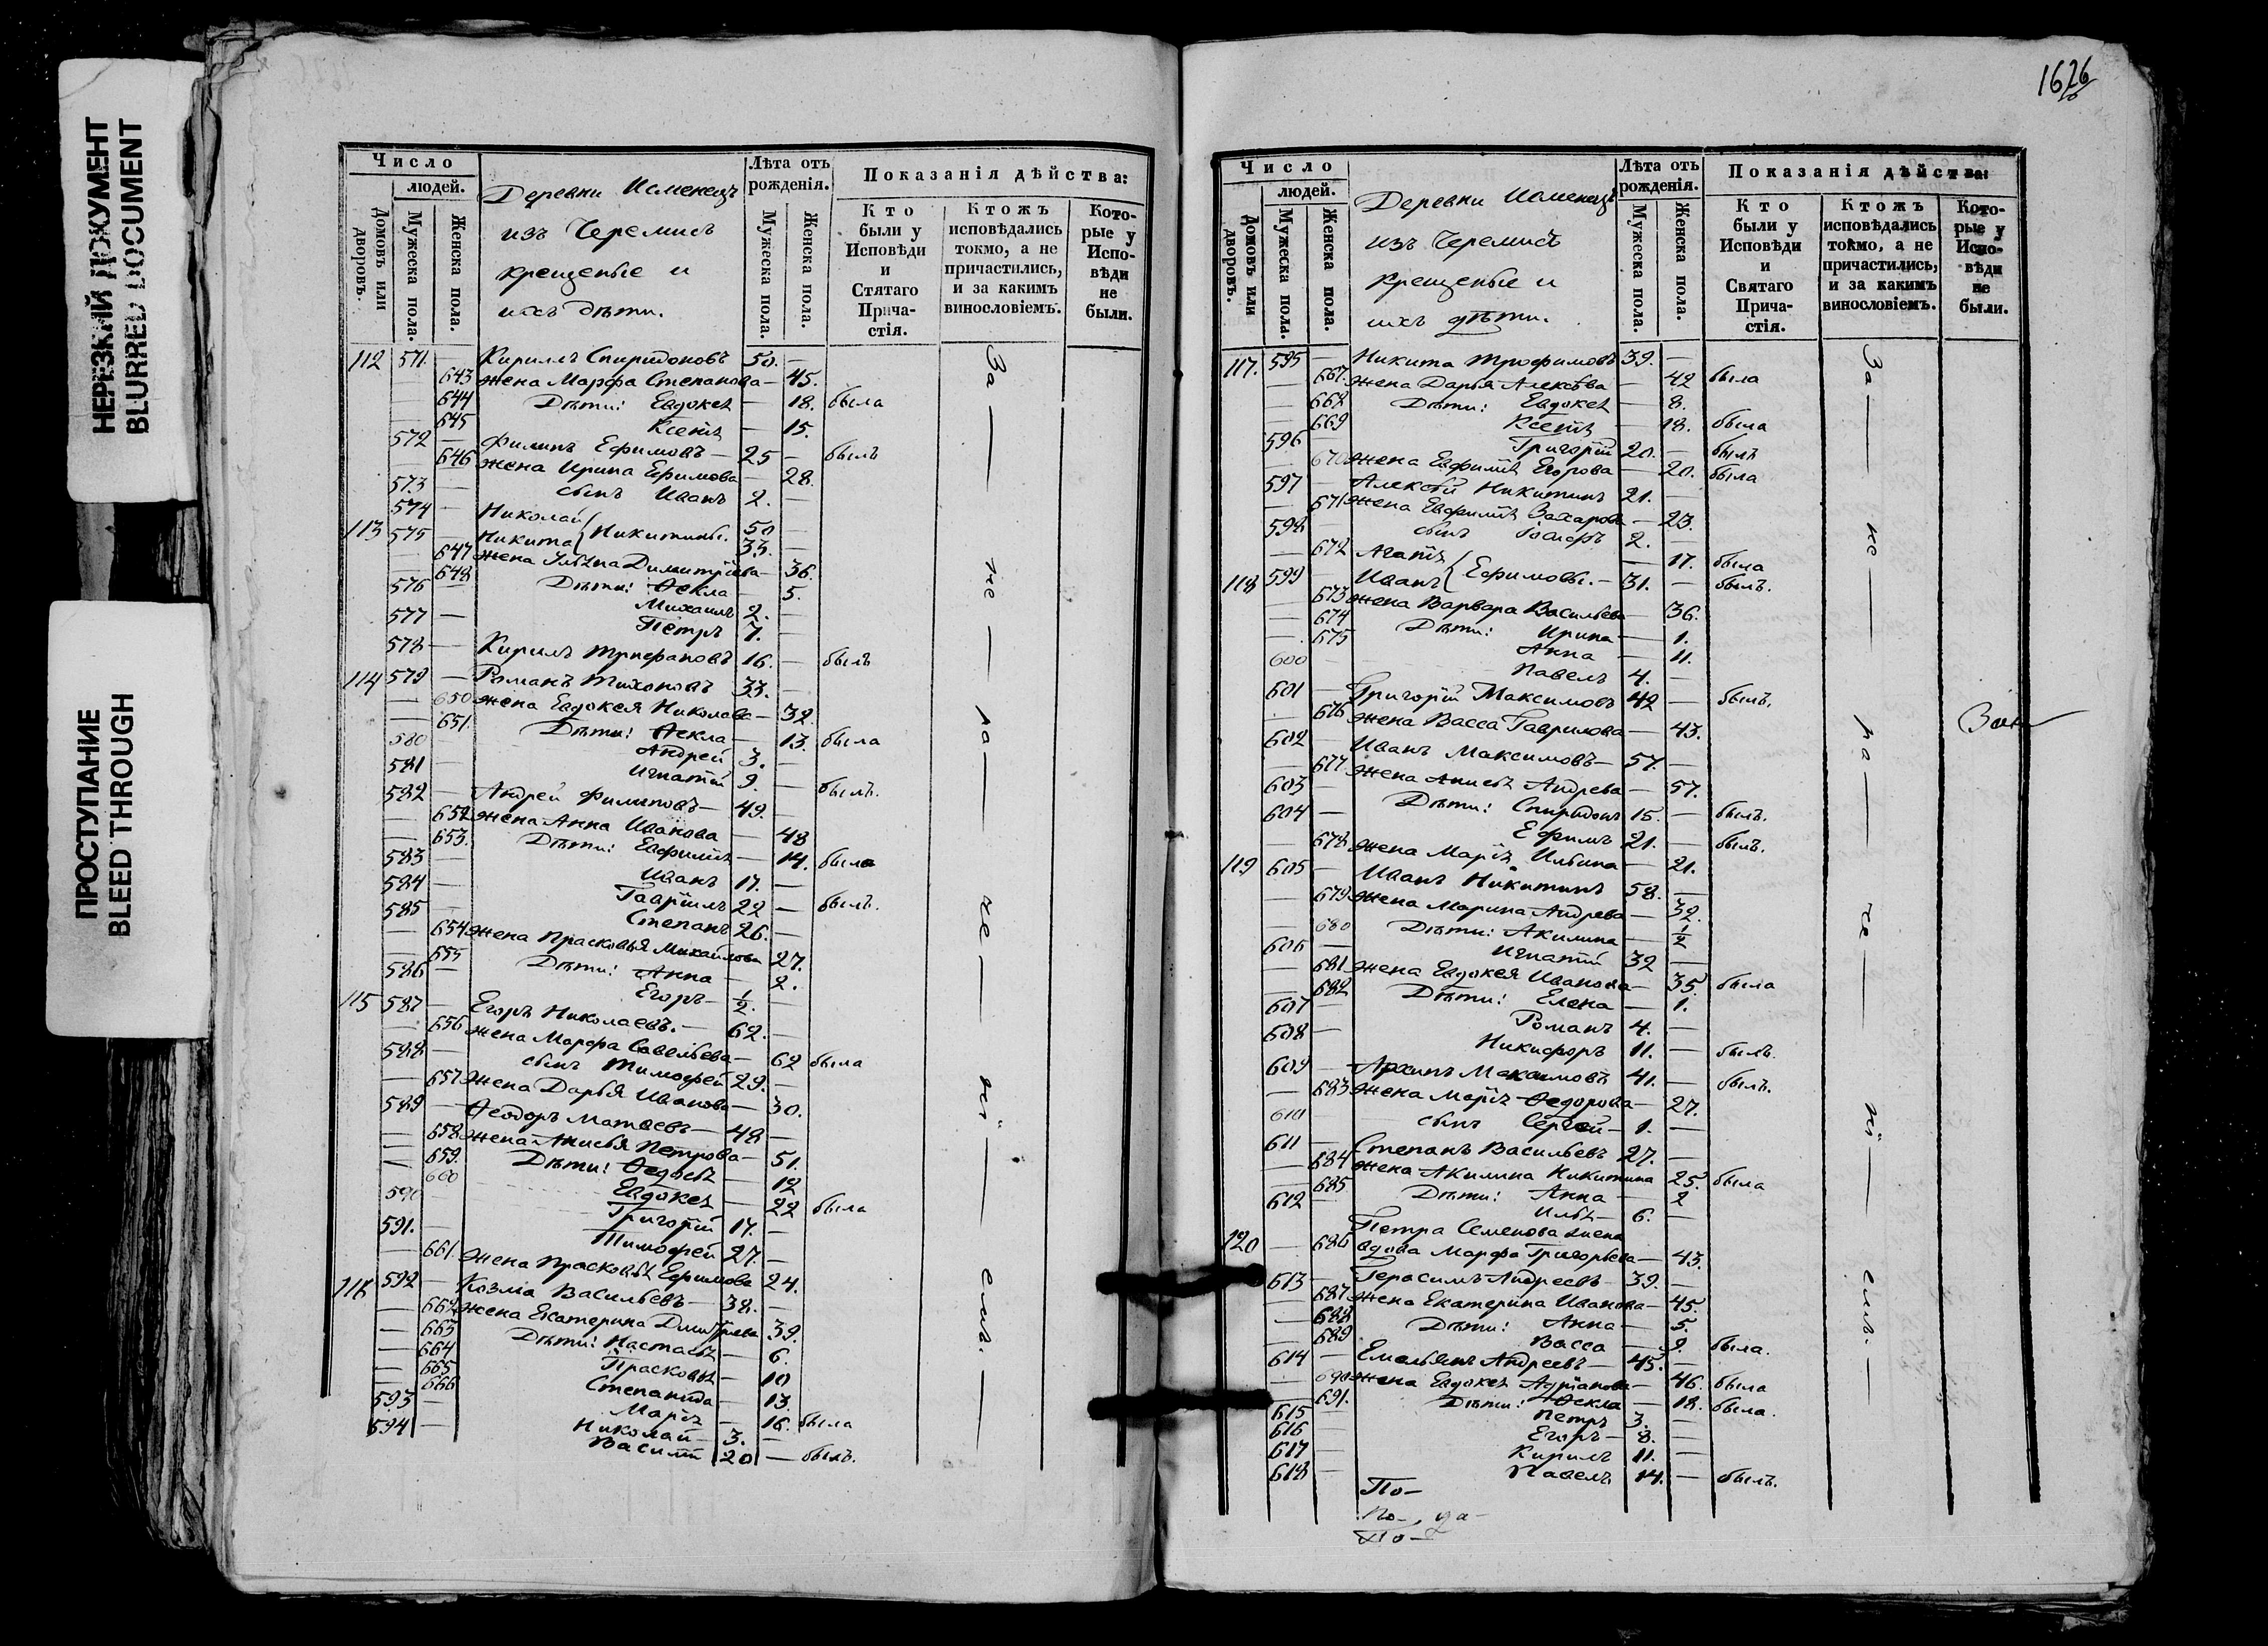 НЕРЕЗКИЙ ДОКУМЕНТ
BLURRED DOCUMENT
ПРОСТУПАНИЕ
BLEED THROUGH
Число
людей.
Домовъ или дворовъ.
Мужеска пола.
Женска пола.
Деревни Исменецъ
изъ Черемисъ
крещеные и
ихъ дѣти.
Лѣта отъ рожденія.
Мужеска пола.
Женска пола.
Показанія дѣйства:
Кто были у Исповѣди и Стятаго Прича- стія.
Ктожъ исповѣдались токмо, а не причастились, и за какимъ винословіемъ.
Кото- рые у Испо- вѣди не были.
112 571. — Кирилъ Спиридоновъ 50. —
— 643 жена Марфа Степанова — 45.
— 644 Дѣти: Евдокея — 18. была
— 645 Ксенія — 15.
572 — Филипъ Ефимовъ — 25 — былъ
— 646 жена Ирина Ефимова — 28.
573 — сынъ Иванъ 2. —
574 — Николай 50 —
113 575 — Никита } Никитины. 33. —
— 647 жена Ульяна Димитріева — 36.
— 648 Дѣти: Ѳекла — 5.
576 Михаилъ 2. —
577 — Петръ 7. —
578 — Кирилъ Трифановъ 16. — былъ
114 579 — Романъ Тихоновъ 33. —
— 650 жена Евдокея Николаева — 32.
— 651. Дѣти: Ѳекла — 13. была
580 — Андрей 3. —
581 — Игнатій 9. —
582 — Андрей Филиповъ — 49. — былъ.
— 652 жена Анна Иванова — 48
— 653. Дѣти: Евфимія — 14. была
583 — Иванъ 17. —
584 — Гавріилъ 22 — былъ.
585 — Степанъ 26. —
— 654 жена Прасковья Михайлова 27.
— 655 Дѣти: Анна — 2.
586 — Егоръ — 1/2. —
115 587 — Егоръ Николаевъ. — 62. —
— 656 жена Марфа Савельева — 62 была
588 — сынъ Тимофей 29. —
— 657 жена Дарья Иванова — 30.
589 — Ѳеодоръ Матвеевъ — 48 —
— 658 жена Анисья Петрова — 51.
— 659. Дѣти: Ѳедосья — 12
— 660 Евдокея — 22 была
590 Григорій 17. —
591. — Тимофей 27. —
— 661. жена Прасковья Ефимова 24.
116 592 — Козма Васильевъ — 38. —
— 662 жена Екатерина Димитріева 39.
— 663 Дѣти: Настасья — 6.
— 664 Прасковья — 10
— 665 Степанида — 13.
— 666 Марія — 16. была
593 — Николай — 3. —
594 — Василій 20 — былъ.
За — не — ра — че — ні — емъ. —
1626
Число
людей.
Домовъ или дворовъ.
Мужеска пола.
Женска пола.
Деревни Исменецъ
изъ Черемисъ
крещеные и
ихъ дѣти.
Лѣта отъ рожденія.
Мужеска пола.
Женска пола.
Показанія дѣйства:
Кто были у Исповѣди и Святаго Прича- стія.
Ктожъ исповѣдались токмо, а не причастились, и за какимъ винословіемъ.
Кото- рые у Испо- вѣди не были.
117. 595 — Никита Трофимовъ 39. —
— 667. жена Дарья Алексѣва — 42 была
— 668 Дѣти: Евдокея — 8.
— 669 Ксенія — 18. была
596 — Григорій 20. — былъ
— 670 жена Евфимія Егорова — 20. была
597 — Алексѣй Никитинъ 21. —
— 671 жена Евфимія Захарова — 23.
598 — сынъ Іосифъ 2. —
— 672 Агапія — 17. была
118 599 — Иванъ } Ефимовы. — 31. — былъ.
— 673 жена Варвара Васильева — 36.
— 674 Дѣти: Ирина — 1.
— 675 Анна — 11.
600 Павелъ 4. —
601 — Григорій Максимовъ 42 — былъ.
— 676 жена Васса Гаврилова — 43.
602 — Иванъ Максимовъ — 57. —
— 677 жена Анисья Андрева — 57.
603 — Дѣти: Спиридонъ 15. — былъ.
604 — Ефимъ 21. — былъ.
— 678 жена Марія Ильина — 21.
119 605 — Иванъ Никитинъ 58. —
— 679 жена Марина Андрева — 32.
— 680 Дѣти: Акилина — 1/2
606 — Игнатій 32 —
— 681 жена Евдокея Иванова — 35. была
— 682 Дѣти: Елена — 1.
607 — Романъ 4. —
608 — Никифоръ 11. — былъ.
609 — Архипъ Максимовъ 41. — былъ.
— 683 жена Марія Ѳедорова — 27.
610 — сынъ Сергѣй — 1. —
611 — Степанъ Васильевъ 27. —
— 684 жена Акилина Никитина 25. была
— 685 Дѣти: Анна — 2
612 Илья — 6. —
Петра Семенова жена
120 — 686 вдова Марфа Григорьева — 43.
613 — Герасимъ Андреевъ — 39. —
— 687 жена Екатерина Иванова — 45.
— 688 Дѣти: Анна — 5.
— 689 Васса — 9. была.
614 — Емельянъ Андреевъ — 45. —
— 690 жена Евдокея Адріанова — 46. была
— 691. Дѣти: Ѳекла — 18. была.
615 — Петръ 3. —
616 Егоръ — 8. —
617 — Кирилъ 11. —
618 — Павелъ 14. — былъ.
За — не — ра — че — ні — емъ. —
По —